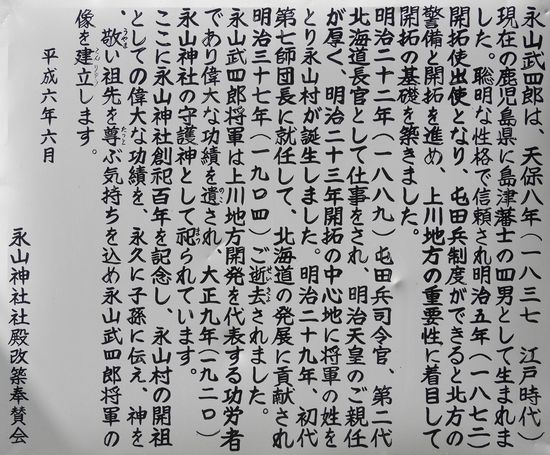 永山武四郎は、天保八年(一八三七 江戸時代)
現在の鹿児島県に島津藩士の四男として生まれま
した。聡明な性格で信頼され明治五年(一八七二)
開拓使出使となり、屯田兵制度ができると北方の
警備と開拓を進め、上川地方の重要性に着目して
開拓の基礎を築きました。
明治二十二年(一八八九)屯田兵司令官、第二代
北海道長官として仕事をされ、明治天皇のご親任
が厚く、明治二十三年開拓の中心地に将軍の姓を
とり永山村が誕生しました。明治二十九年、初代
第七師団長に就任して、北海道の発展に貢献され
明治三十七年(一九〇四)ご逝去されました。
永山武四郎将軍は上川地方開発を代表する功労者
であり偉大な功績を遺され、大正九年(一九二〇)
永山神社の守護神として祀られています。
ここに永山神社創祀百年を記念し、永山村の開祖
としての偉大な功績を、永久に子孫に伝え、神を
敬い祖先を尊ぶ気持ちを込め永山武四郎将軍の
像を建立します。
平成六年六月
永山神社社殿改築奉賛会